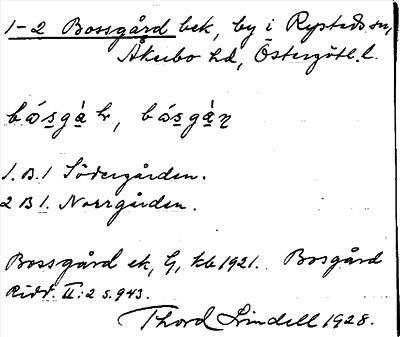 1-2 Bossgård bek, by i Rystads sn,
Åkerbo hd, Östergötl. l.
bósgà r, bósgàn
1. B. 1 Södergården.
2 B 1. Norrgården.
Bossgård ek, G, kb 1921. Bosgård
Ridd. II: 2 s. 943.
Thord Lindell 1928.